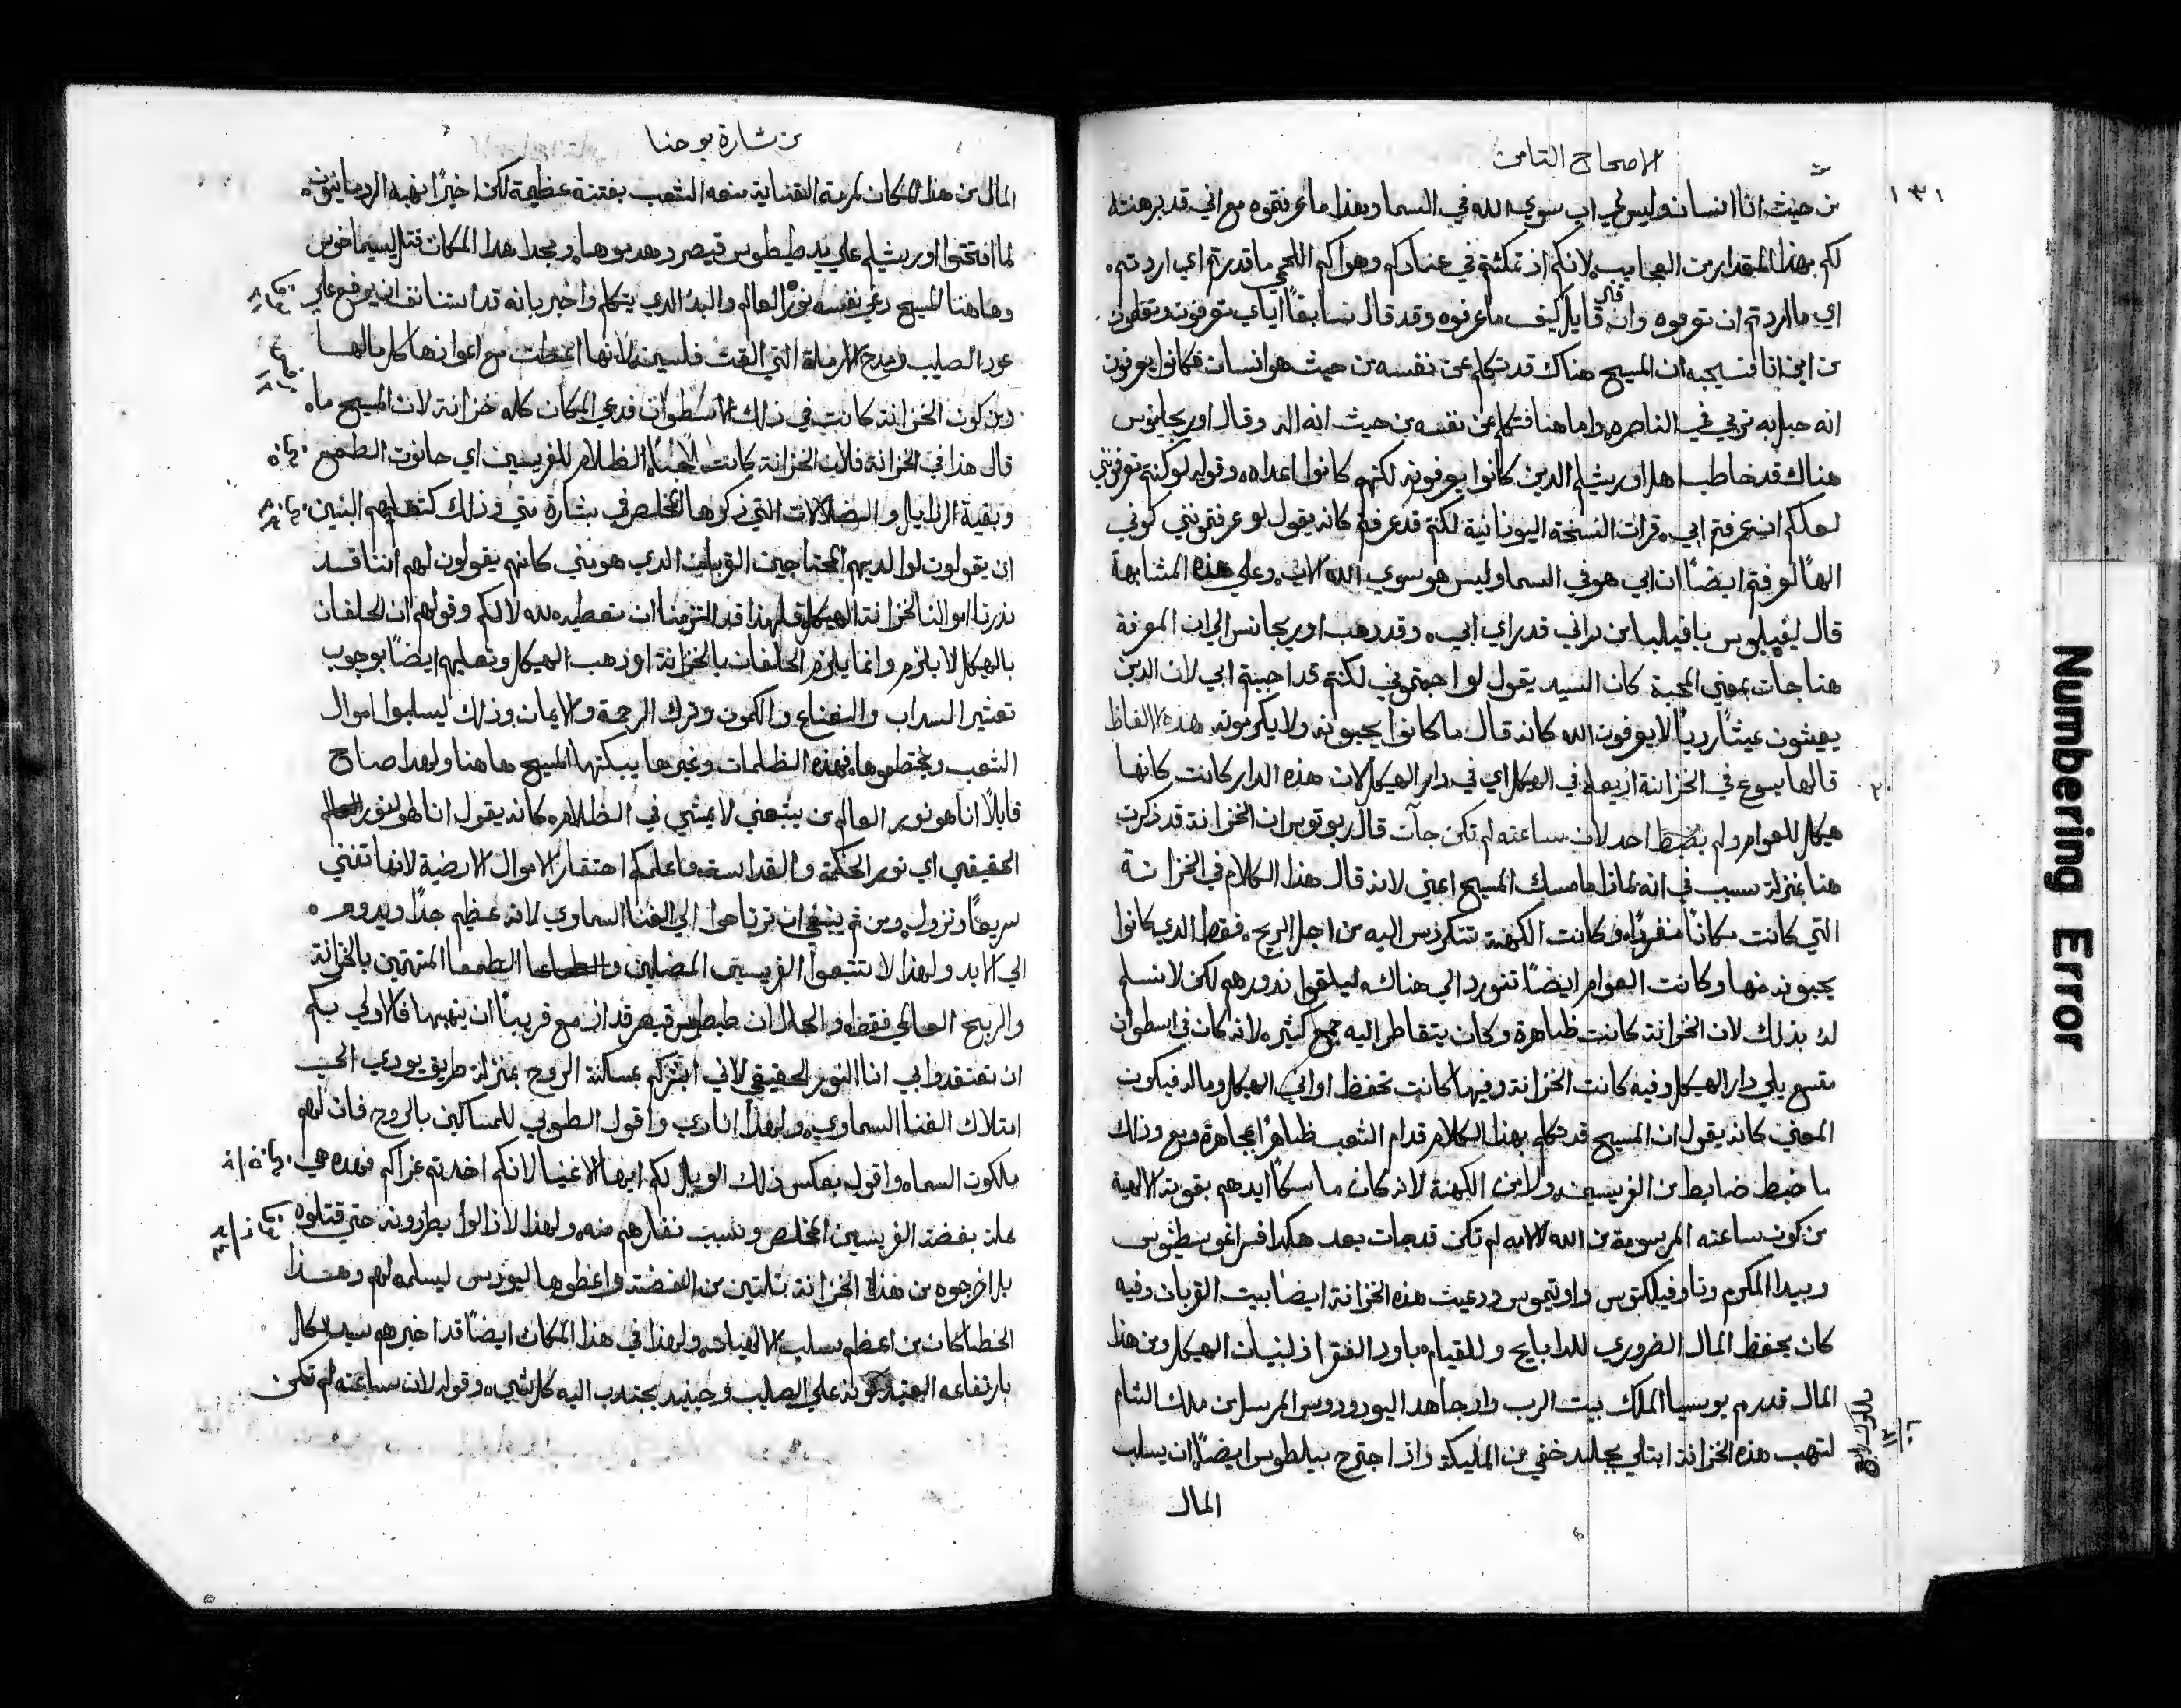 الاصحاح التامن
١٣١
من حيث انا انسان وليس لي اب سوي الله في السما وهذا ما عرفتموه مع اني قد برهنته
لكم بهذا المقدار من العجايب لانكم اذ تمكنتم في عنادكم وهواكم اللحمي ما قدرتم اي اردتم
اي ما اردتم ان تعرفوه وان قال قايل كيف ما عرفوه وقد قال سابقًا اياي تعرفون وتعلمون
من اين انا فنجيبه ان المسيح هناك قد تكلم عن نفسه من حيث هو انسان فكانوا يعرفون
انه حبل به تربي في الناصره واما هنا فتكلم عن نفسه من حيث انه اله وقال اوريجانوس
هناك قد خاطب اهل اورشليم الدين كانوا يعرفونه لكنهم كانوا اعداه وقوله لو كنتم تعرفوني
لعلكم ان عرفتم ابي قرات النسخة اليونانية لكنتم قد عرفتم كانه يقول لو عرفتموني كوني
الهًا لعرفتم ايضًا ان ابي هو في السما وليس هو سوي الله الاب وعلي هذه المشابهة
قال لفيلبوس يا فيلبا من راني قد راي ابي وقد دهب اوريجانس الي ان المعرفة
هنا جات بمعني المحبة كان السيد يقول لو احببتموني لكنتم قد احببتم ابي لان الدين
يعيشون عيشًا رديًا لا يعرفون الله كانه قال ما كانوا يحبونه ولا يكرمونه هذه الالفاظ
٢٠ قالها يسوع في الخزانة اذ يعلم في الهيكل اي في دار الهيكل لان هذه الدار كانت كانها
هيكل للعوام ولم يضبط احد لان ساعته لم تكن جآت قال ان الخزانة قد ذكرت
هنا بمنزلة سبب في انه لماذا ما مسك المسيح اعني لانه قال هذا الكلام في الخزانة
التي كانت مكانًا منفردًا وكانت الكهنة تتكردس اليه من اجل الربح فقط الدي كانوا
يجبونه منها وكانت العوام ايضًا تتورد الي هناك ليلقوا ندورهم لكن لا نسلم
له بذلك لان الخزانة كانت ظاهرة وكان يتقاطر اليه جمع كثير لانه كان في اسطوان
متسع يلي دار الهيكل وفيه كانت الخزانة وفيها كانت تحفظ اواني الهيكل وماله فيكون
المعني كانه يقول ان المسيح قد تكلم بهذا الكلام قدام الشعب ظاهرًا مجاهرة ومع ذلك
ما ضبط ضابط من الفريسيين ولا من الكهنة لانه كان ماسكًا ايديهم بقوته الالهية
من كون ساعته المرسومة من الله لالامه لم تكن قد جات بعد هكدا فسر اغوسطينوس
وبيدا المكرم وتاوفيلكتوس واوتيموس ودعيت هذه الخزانة ايضًا بيت القربان وفيه
كان يحفظ المال الضروري للدبايح وللقيام باود الفقرا ولبنيان الهيكل ومن هذا
المال قد رمم يوسيا الملك بيت الرب واد جاهد اليودوروس المرسل من ملك الشام
لنهب هذه الخزانة ابتلي بجلد خفي من المليكة واذ اجترح بيلاطوس ايضًا ان يسلب
ملوك رابع
المال
من بشارة يوحنا
المال من هذا المكان لمرمة القناية منعه الشعب بفتنة عظيمة لكن اخيرًا نهبه الرومانيون
لما افتتحوا اورشليم علي يد طيطوس قيصر وهدموها ومجدا هدا المكان
وهاهنا المسيح دعي نفسه نور العالم والبدء الدي يتكلم واخبر بانه قد استانف ان يرفع علي
عود الصليب ومدح الارملة التي القت فلسين لانها اعطت مع اعوازها كل مالها
ومن كون الخزانة كانت في ذلك الاسطوان فدعي المكان كله خزانة لان المسيح ما
قال هذا في الخزانة فلان الخزانة كانت الظلام للفريسيين اي حانوت الطمع
وبقية الردايل والضلالات التي ذكرها المخلص في بشارة متي وذلك كتعليمهم البنين
ان يقولون لوالديهم المحتاجين القربان الدي هو مني كانهم يقولون لهم اننا قد
ندرنا اموالنا لخزانة الهيكل فلهذا قد التزمنا ان نعطيه لله لا لكم وقولهم ان الحلفان
بالهيكل لا يلزم وانما يلزم الحلفان بالخزانة او دهب الهيكل وتعليمهم ايضًا بوجوب
تعشير السداب والنعناع والكمون وترك الرحمة والايمان وذلك ليسلبوا اموال
الشعب ويختطفوها فهذه الظلمات وغيرها يبكتها المسيح هاهنا ولهدا صاح
قايلًا انا هو نور العالم من يتبعني لا يمشي في الظلام كانه يقول انا هو النور
الحقيقي اي نور الحكمة والقداسة فاعلمكم احتقار الاموال الارضية لانها تفني
سريعًا وتزول ومن ثم ينبغي ان ترتاحوا الي الغنا السماوي لانه عظيم جدًا ويدوم
الي الابد ولهذا لا تتبعوا الفريسيين المضلين الطمعا المنهتمين بالخزانة
والربح العالي فقط والحال ان طيطوس قيصر قد ازمع قريبًا ان ينهبها فالاولي بكم
ان تعتقدوا بي انا النور الحقيقي لاني ابشركم بمسكنة الروح بمنزلة طريق يودي الي
امتلاك الغنا السماوي ولهذا انادي واقول الطوبي للمساكين بالروح فان لهم
ملكوت السماء واقول بعكس ذلك الويل لكم ايها الاغنيا لانكم اخدتم عزاكم فهده هي
علة بغضة الفريسيين المخلص وسبب نفارهم منه ولهذا لا زالوا يطردونه حتي قتلوه
بل اخرجوه من هذه الخزانة بثلثين من الفضة واعطوها ليودس ليسلمه لهم وهذا
الخطا كان من اعظم سلب الالهيات ولهذا في هذا المكان ايضًا قد اخبرهم سيد الكل
بارتفاعه العتيد كونه علي الصليب وحينيد يجتدب اليه كل شيء وقوله لان ساعته لم تكن